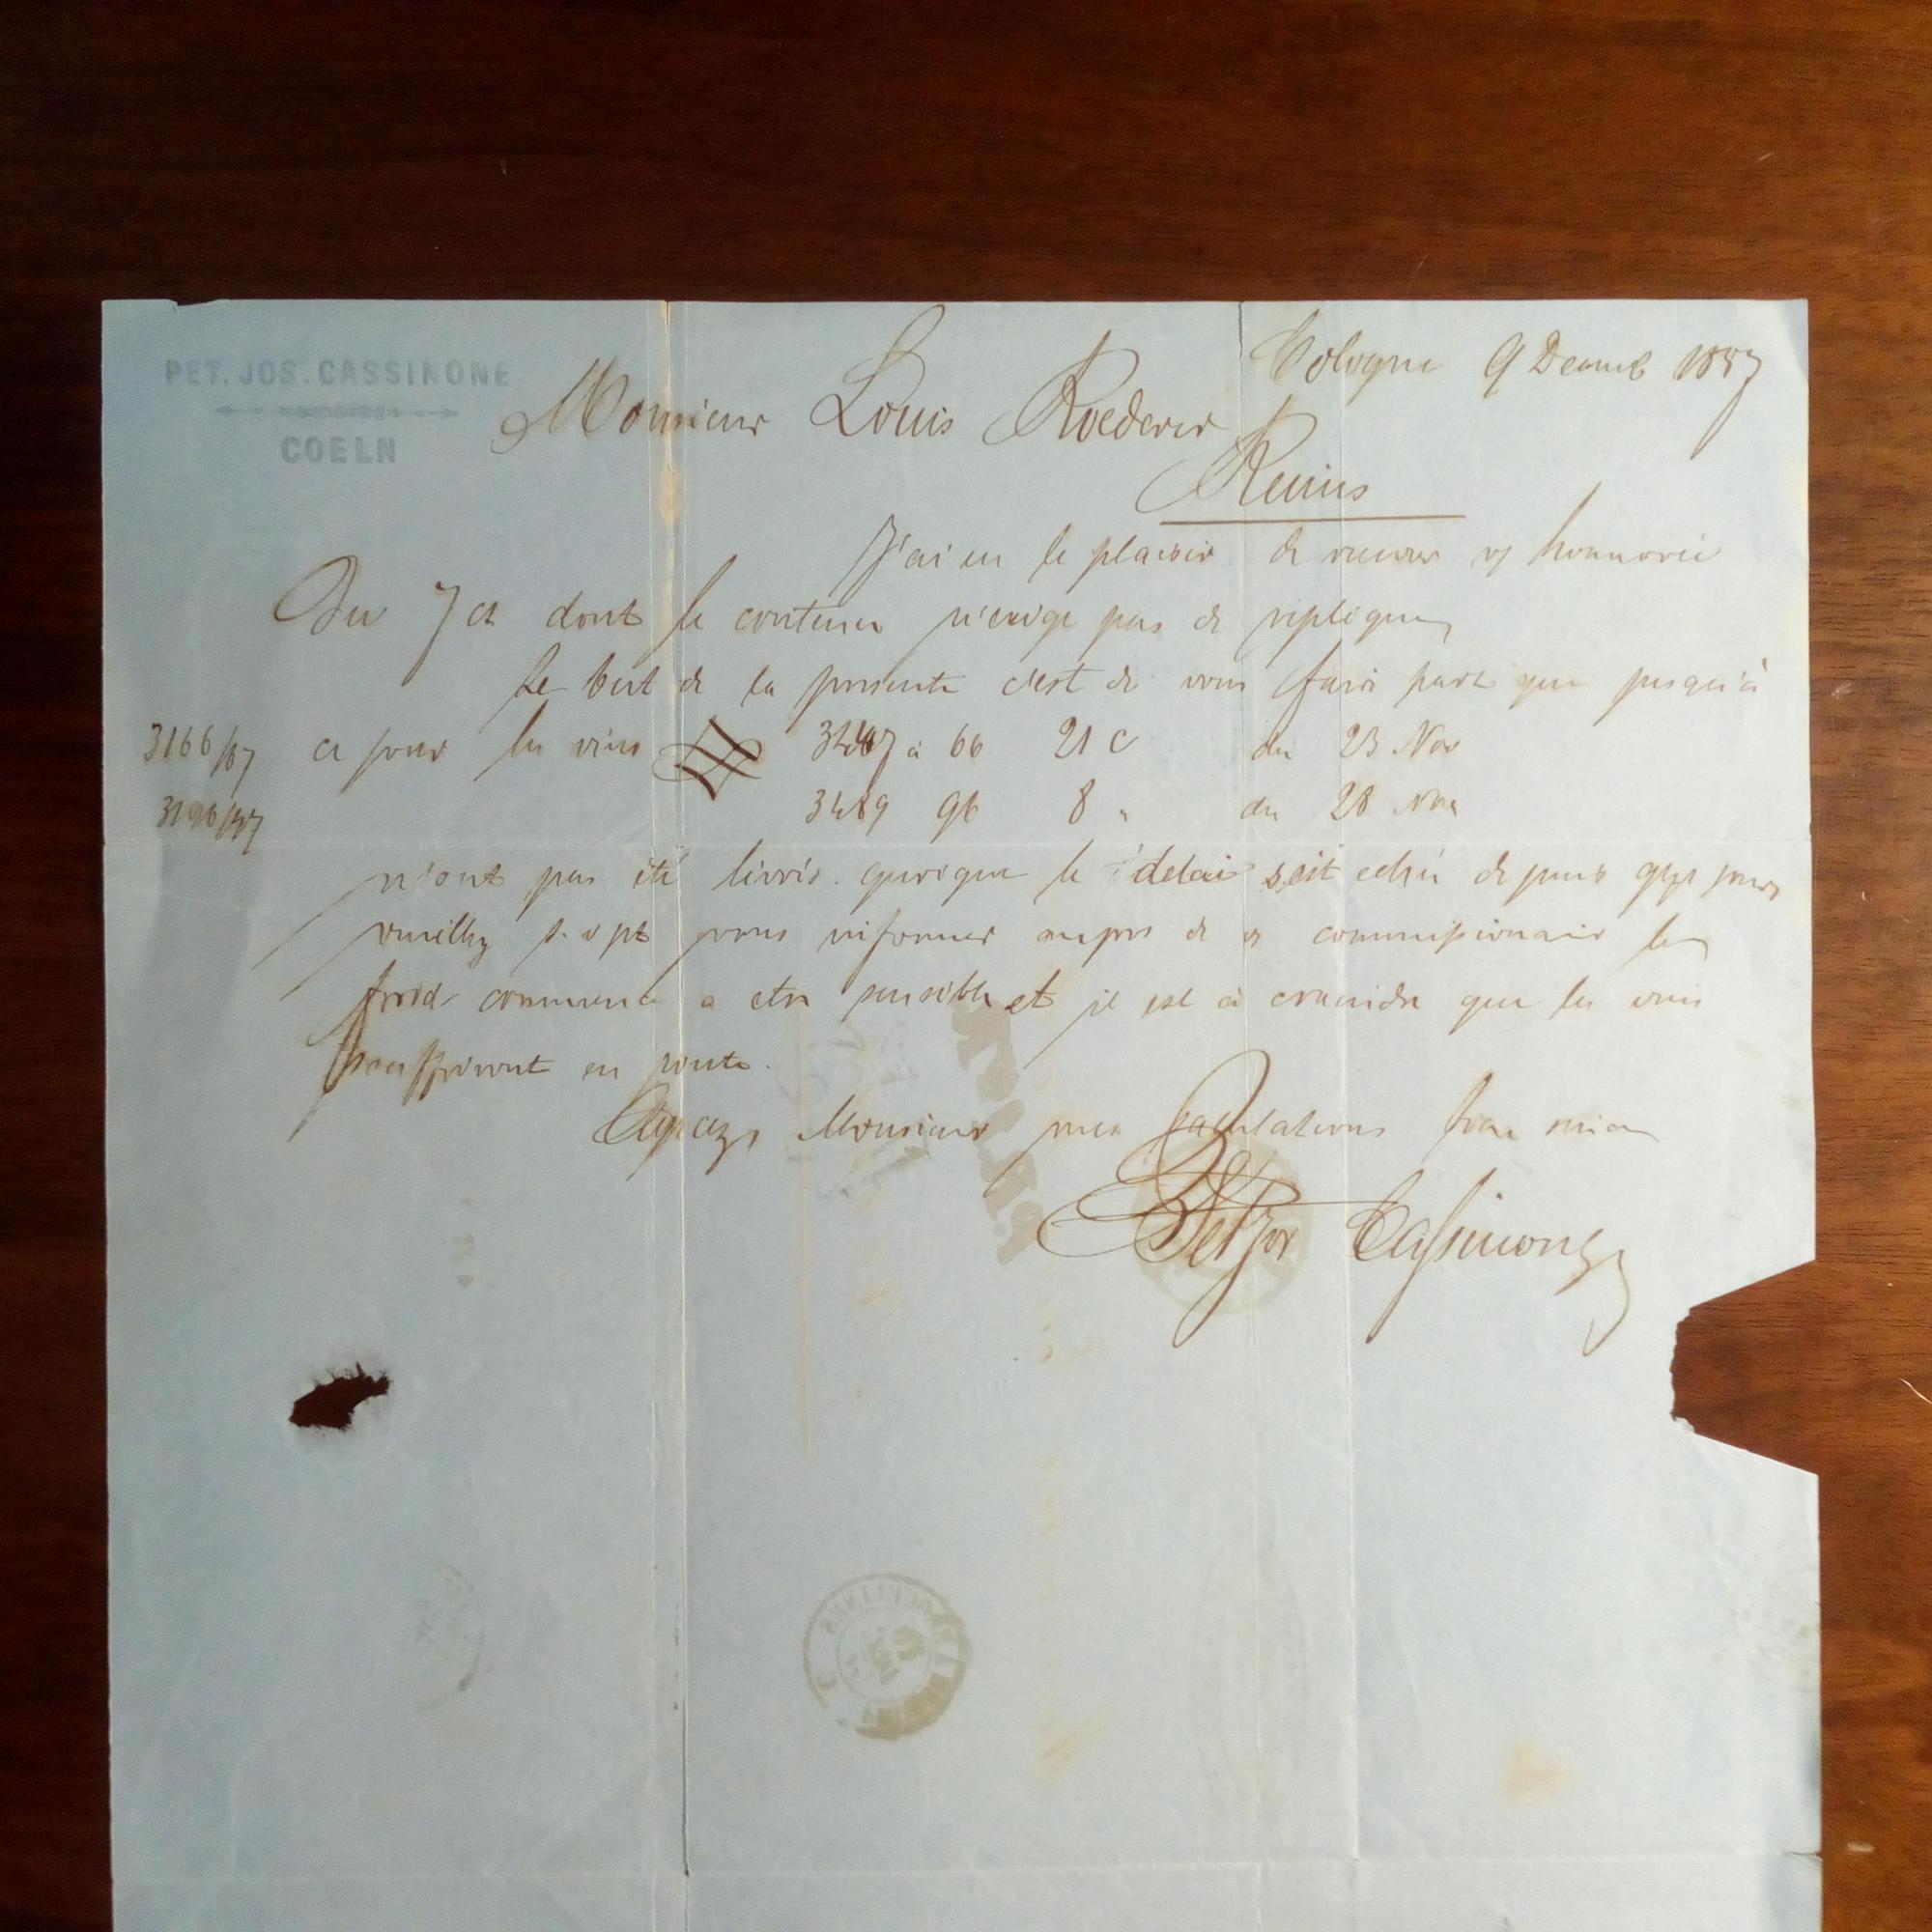 PET. JOS. CASSINONE
COELN
Cologne 9 Decemb 1857
Monsieur Louis Roederer
Reims
J'ai eu le plaisir de recevoir vs honnorée
Du 7 ct dont le contenu n'exige pas de replique
Le but de la presente c'est de vous faire part que jusqu'à
3166/87 ce jour les vins 3447 à 66 21 C du 23 Nov
3196/97 3489 96 8 " du 28 Nov
n'ont pas été livrés. quoique le delai soit echu depuis qqs jours
veuillez s. v. pt vous informer aupres de vs commissionair le
froid commence a etre sensible et il est à craindre que les vins
souffriront en route.
Agreez, Monsieur mes salutations
Pet Jos Cassinone